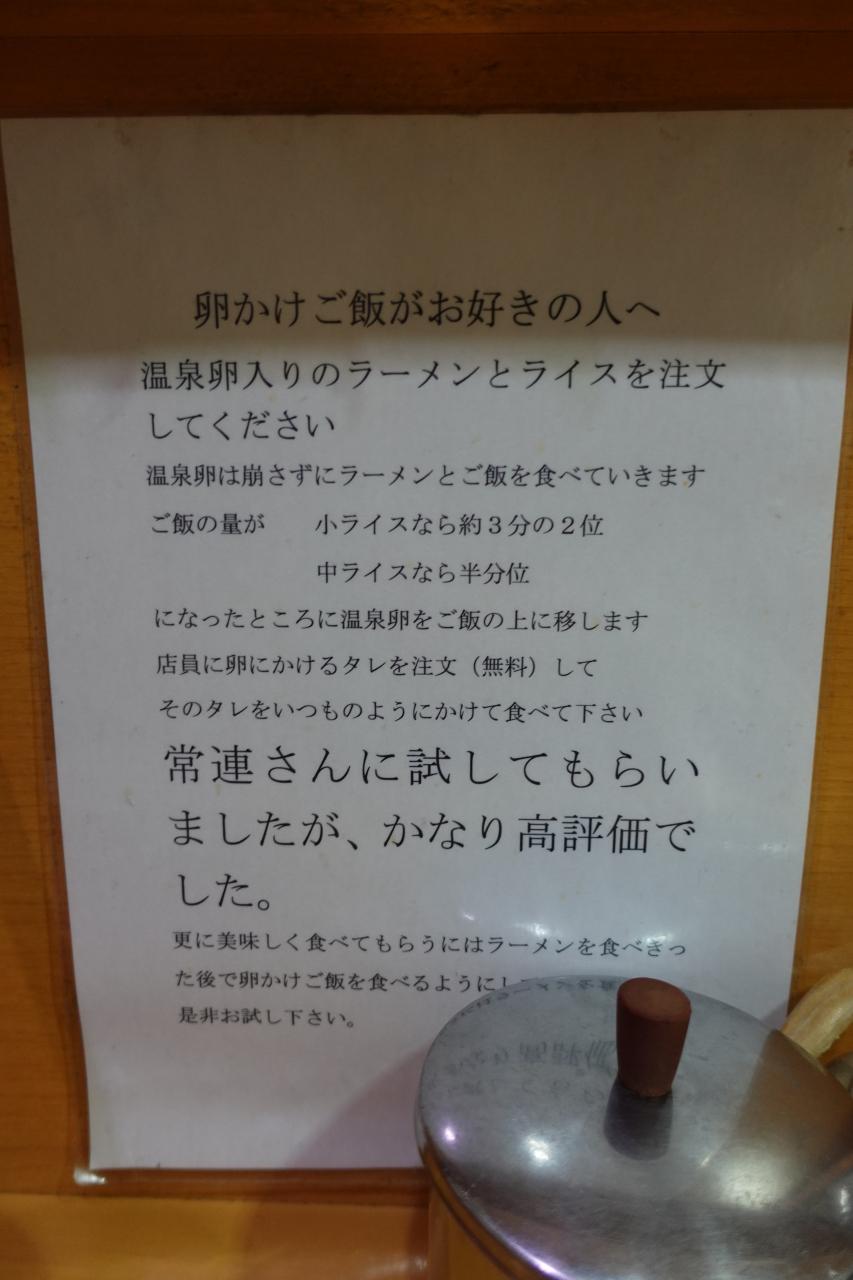 卵かけご飯がお好きの人へ
温泉卵入りのラーメンとライスを注文
してください
温泉卵は崩さずにラーメンとご飯を食べていきます
ご飯の量が　　小ライスなら約３分の２位
中ライスなら半分位
になったところに温泉卵をご飯の上に移します
店員に卵にかけるタレを注文（無料）して
そのタレをいつものようにかけて食べて下さい
常連さんに試してもらい
ましたが、かなり高評価で
した。
更に美味しく食べてもらうにはラーメンを食べきっ
た後で卵かけご飯を食べるように
是非お試し下さい。